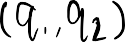 (q_1, q_2)